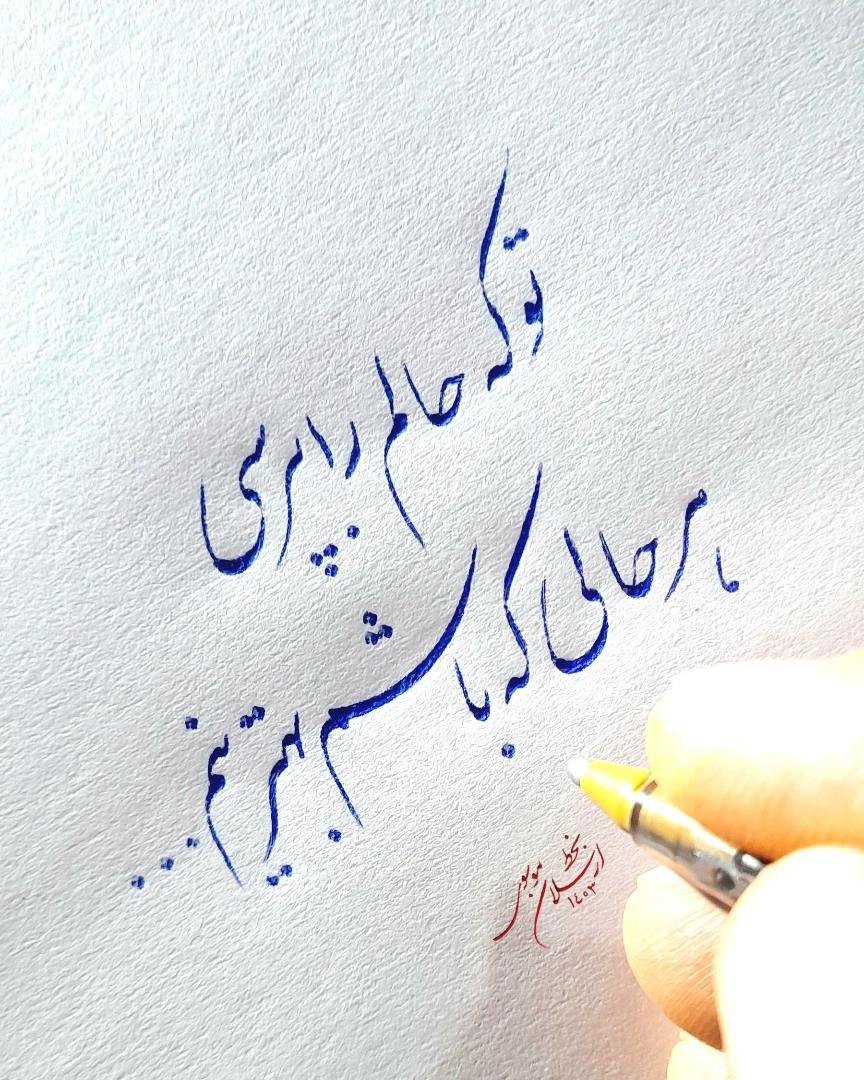 تو که حالم را بپرسی
هر حالی که باشم بهترینم...
بخط
ارسلان موسوی
۱۴۰۳